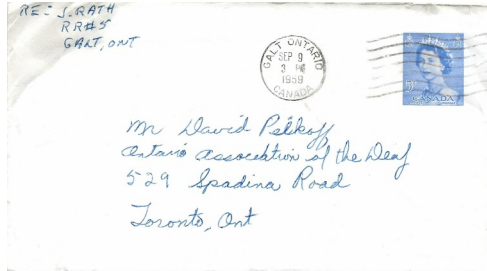 RE: J. RATH
RR#5
GALT, ONT
GALT ONTARIO
SEP 9
3 PM
1959
CANADA
5
CANADA
Mr David Pelkoff
Ontario Association of the Deaf
529 Spadina Road
Toronto, Ont